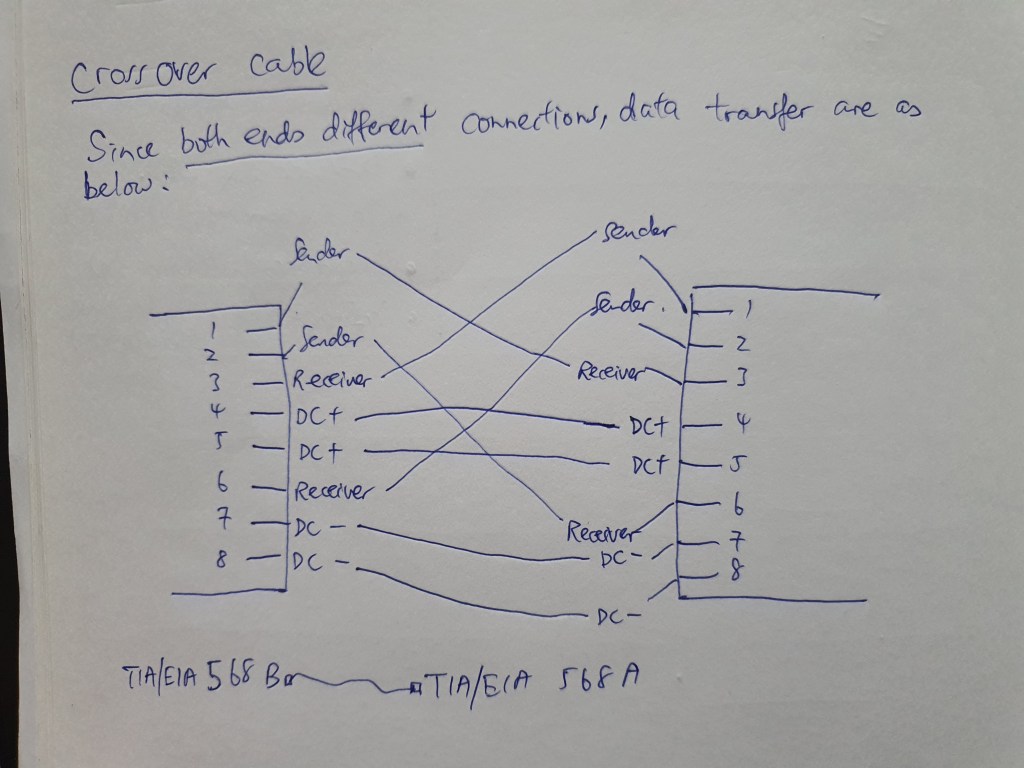 Crossover cable
Since both ends different connections, data transfer are as
below:
Sender
Sender
1 Sender 1
2 Sender 2
3 Receiver Receiver 3
4 DC+ DC+ 4
5 DC+ DC+ 5
6 Receiver Receiver 6
7 DC - DC - 7
8 DC - DC - 8
TIA/EIA 568 B TIA/EIA 568 A